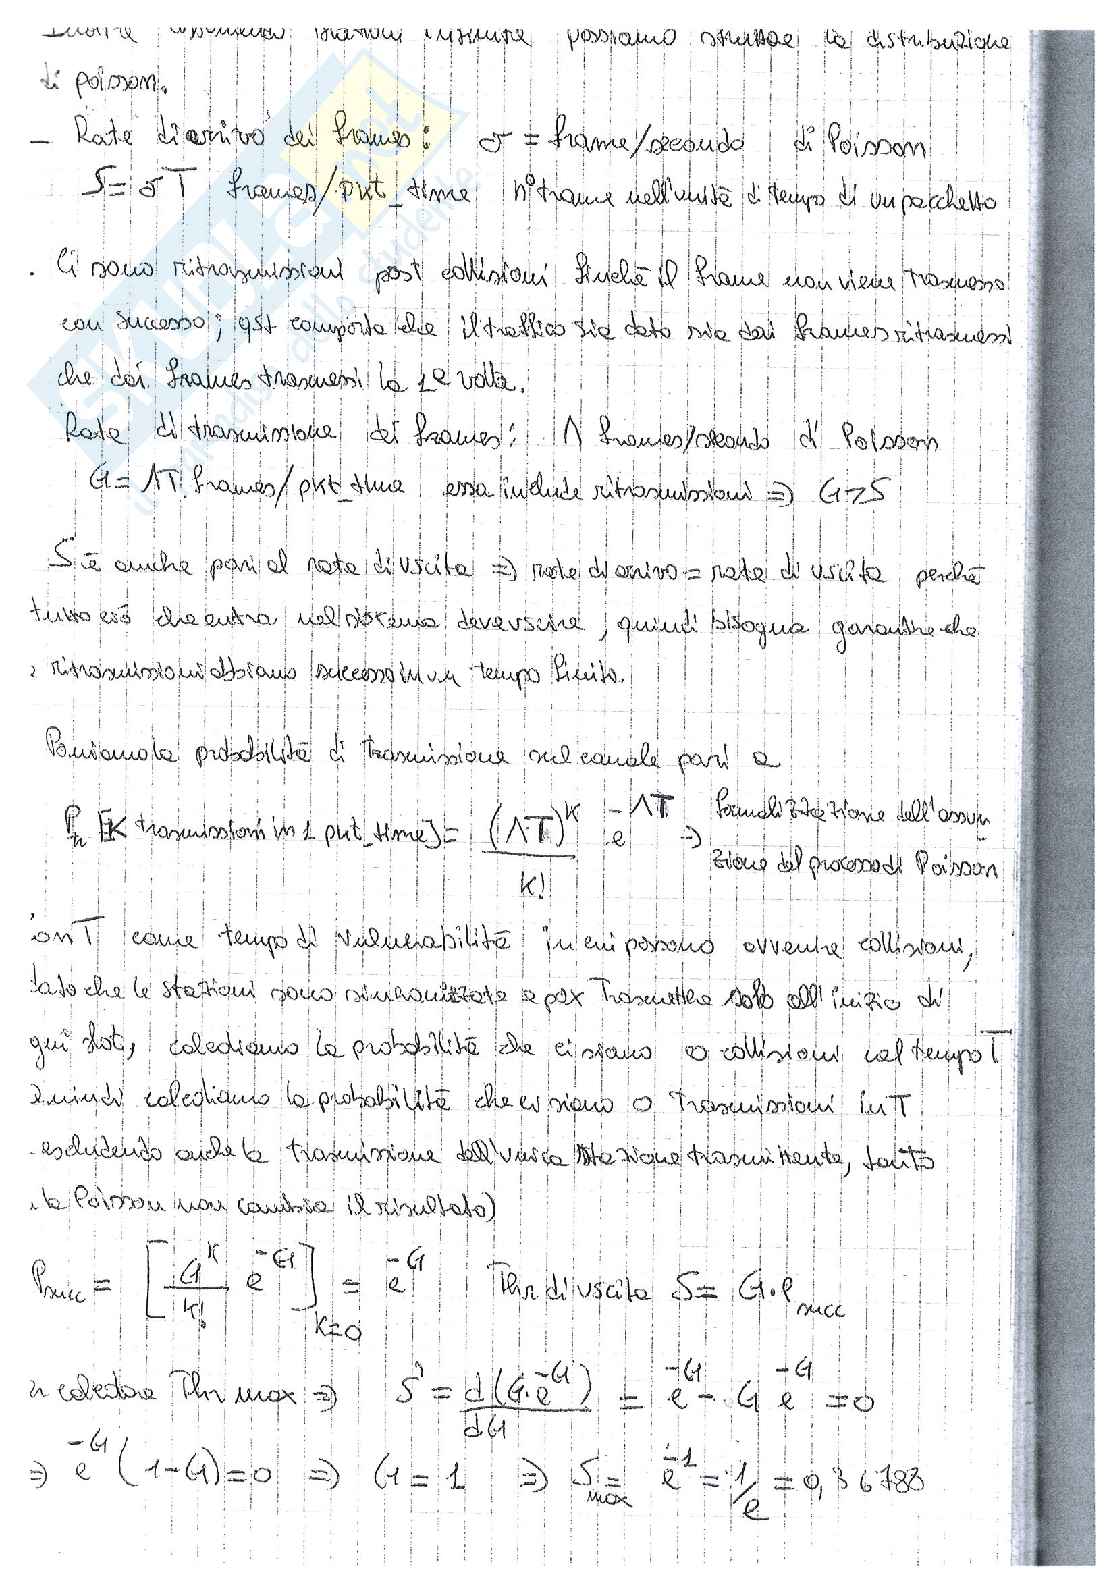 Inoltre assumendo stazioni infinite possiamo sfruttare la distribuzione
di poisson.
- Rate di arrivo dei frames: σ = frame/secondo di Poisson
S = σT frames/pkt_time n° frame nell'unità di tempo di un pacchetto
. Ci sono ritrasmissioni post collisioni finchè il frame non viene trasmesso
con successo; qst comporta che il traffico sia dato sia dai frames ritrasmessi
che dai frames trasmessi la 1ª volta.
Rate di trasmissione dei frames: Λ frames/secondo di Poisson
G = ΛT frames/pkt_time essa include ritrasmissioni ⇒ G>S
S è anche pari al rate di uscita ⇒ rate di arrivo = rate di uscita perchè
tutto ciò che entra nel sistema deve uscire, quindi bisogna garantire che
ritrasmissioni abbiano successo in un tempo finito.
Poniamo la probabilità di trasmissione sul canale pari a
Pr [K trasmissioni in 1 pkt_time] = (ΛT)^K / K! e^-ΛT ⇒ Formalizzazione dell'assun
zione del processo di Poisson
con T come tempo di vulnerabilità in cui possono avvenire collisioni,
dato che le stazioni sono sincronizzate e per trasmettere solo all'inizio di
gni slot, calcoliamo la probabilità che ci siano 0 collisioni nel tempo T
Quindi calcoliamo la probabilità che ci siano 0 trasmissioni in T
escludendo anche la trasmissione dell'unica stazione trasmittente, tanto
la Poisson non cambia il risultato)
Psucc = [G^K / K! e^-G]K=0 = e^-G Thr di uscita S = G·Psucc
calcolare Thr max ⇒ S' = d(G·e^-G) / dG = e^-G - G e^-G = 0
⇒ e^-G (1-G) = 0 ⇒ G = 1 ⇒ Smax = e^-1 = 1/e = 0,36788